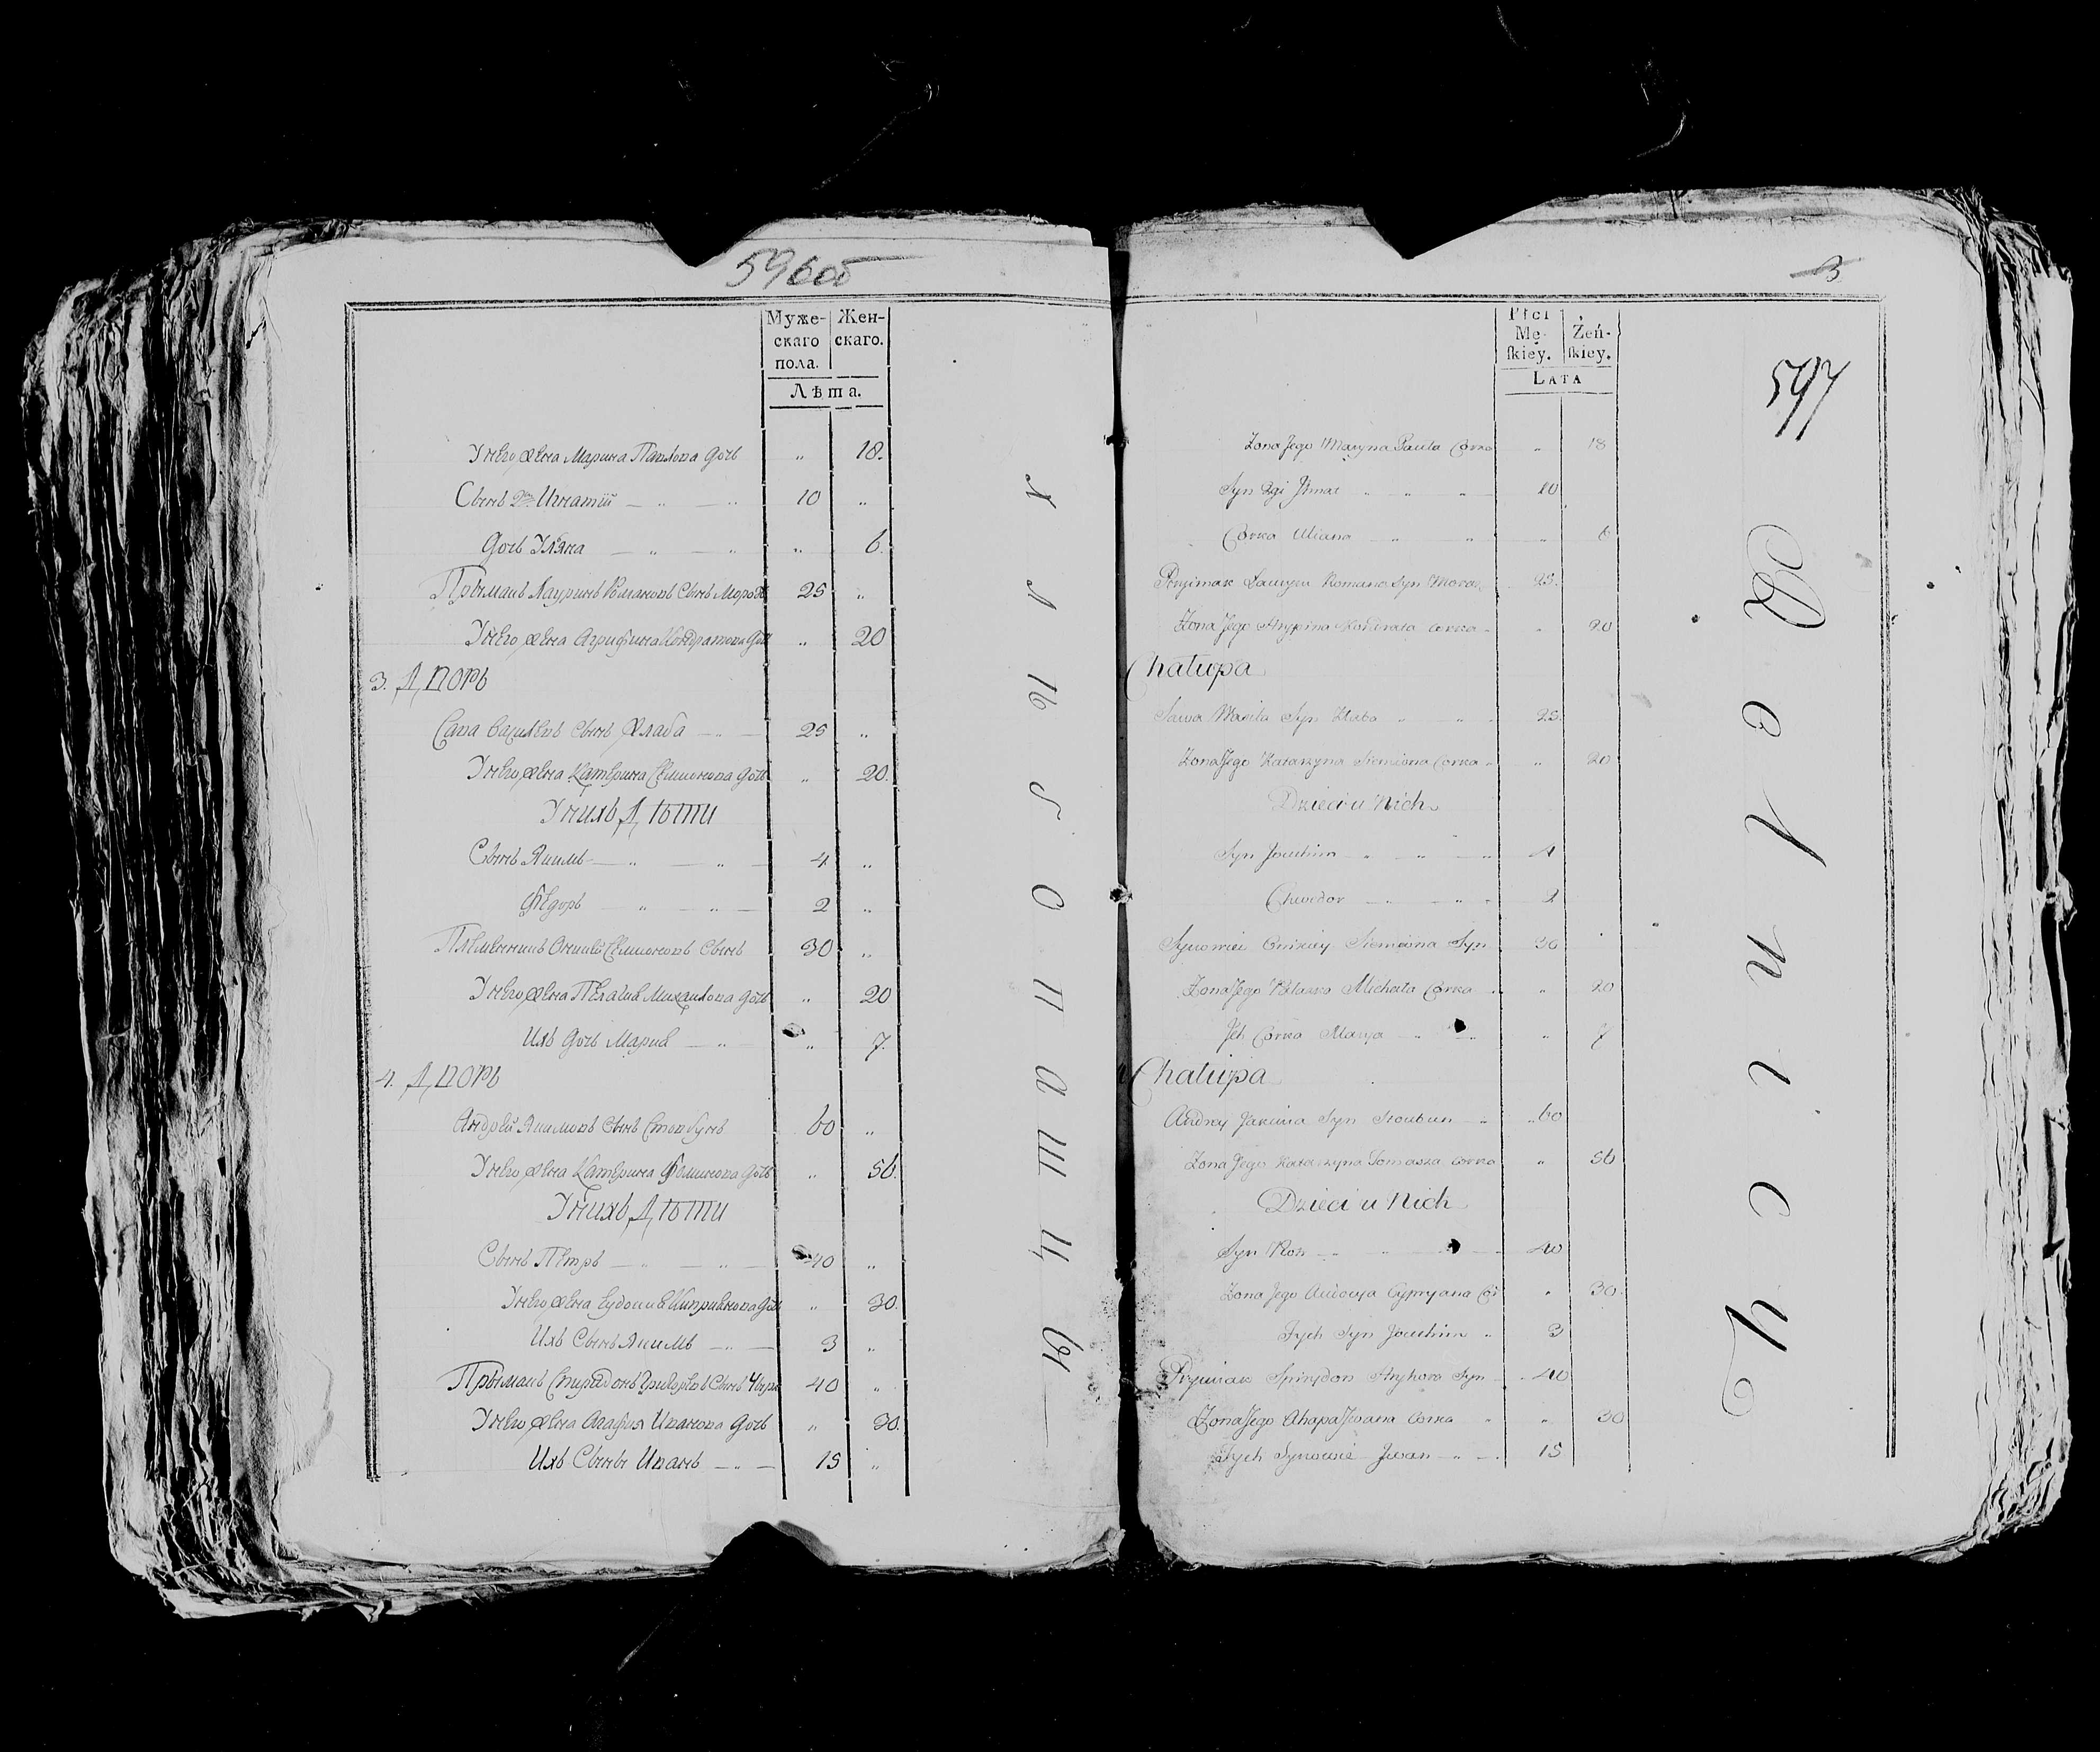 596об
Муже-
скаго
пола.
Жен-
скаго.
Лѣта.
У него жена Марина Павлова дочь „ 18.
Сынъ 2й Игнатій — „ — „ 10 „
Дочь Уляна — „ — „ „ 6.
Прымакъ Лауринъ Романовъ Сынъ Мороз 25 „
У него жена Агрифина Кондратова доч „ 20
3. Дворъ
Сава Василевъ Сынъ Жлаба — „ — 25 „
У него жена Катерина Семионова дочь „ 20.
У нихъ Дѣти
Сынъ Якимъ — „ — „ — 4 „
Федоръ — „ — „ — 2 „
Племенникъ Семионовъ Сынъ 30 „
У него жена Пелагия Михайлова дочь „ 20
Ихъ дочь Мария — „ „ 7.
4. Дворъ
Андрей Якимовъ Сынъ Стовбунъ 60 „
У него жена Катерина Фоминова дочь „ 56.
У нихъ Дѣти
Сынъ Петръ — „ — „ — 40 „
У него жена Еудокия Киприянова доч „ 30.
Ихъ Сынъ Якимъ — „ — 3 „
Прымакъ Спиридонъ Григоревъ Сынъ 40 „
У него жена Агафия Иванова дочь „ 30.
Ихъ Сыны Иванъ — „ — 15 „
3
597
Płci
Mę-
ſkiey.
Żeń-
ſkiey.
Lata
Żona Jego Maryna Pauła Corka „ 18
Syn 2gi Ihnat „ „ „ 10
Corka Uliana „ „ „ 6
Pryimak Ławryn Romana Syn Moroz 25.
Żona Jego Hrypina Kondrata Corka „ 20
Chałupa
Sawa Wasila Syn Żłaba „ „ 25.
Żona Jego Katarzyna Siemiona Corka „ „ 20
Dzieci u Nich
Syn Joachim „ „ „ 4
Chwedor „ „ „ 2
Synowiec Siemiona Syn 30
Żona Jego Michała Corka „ „ 20
Jch Corka Marya „ „ „ 7
Chałupa
Andrey Jakima Syn Stoubun „ 60
Żona Jego Katarzyna Tomasza Corka „ 56
Dzieci u Nich
Syn „ „ „ 40
Żona Jego Audocya Cypryana Co „ 30.
Tych Syn Joachim „ 3
Pryimak Spirydon Hryhora Syn „ 40
Żona Jego Ahapa Jwana Corka „ „ 30
Tych Synowie Jwan „ „ 15